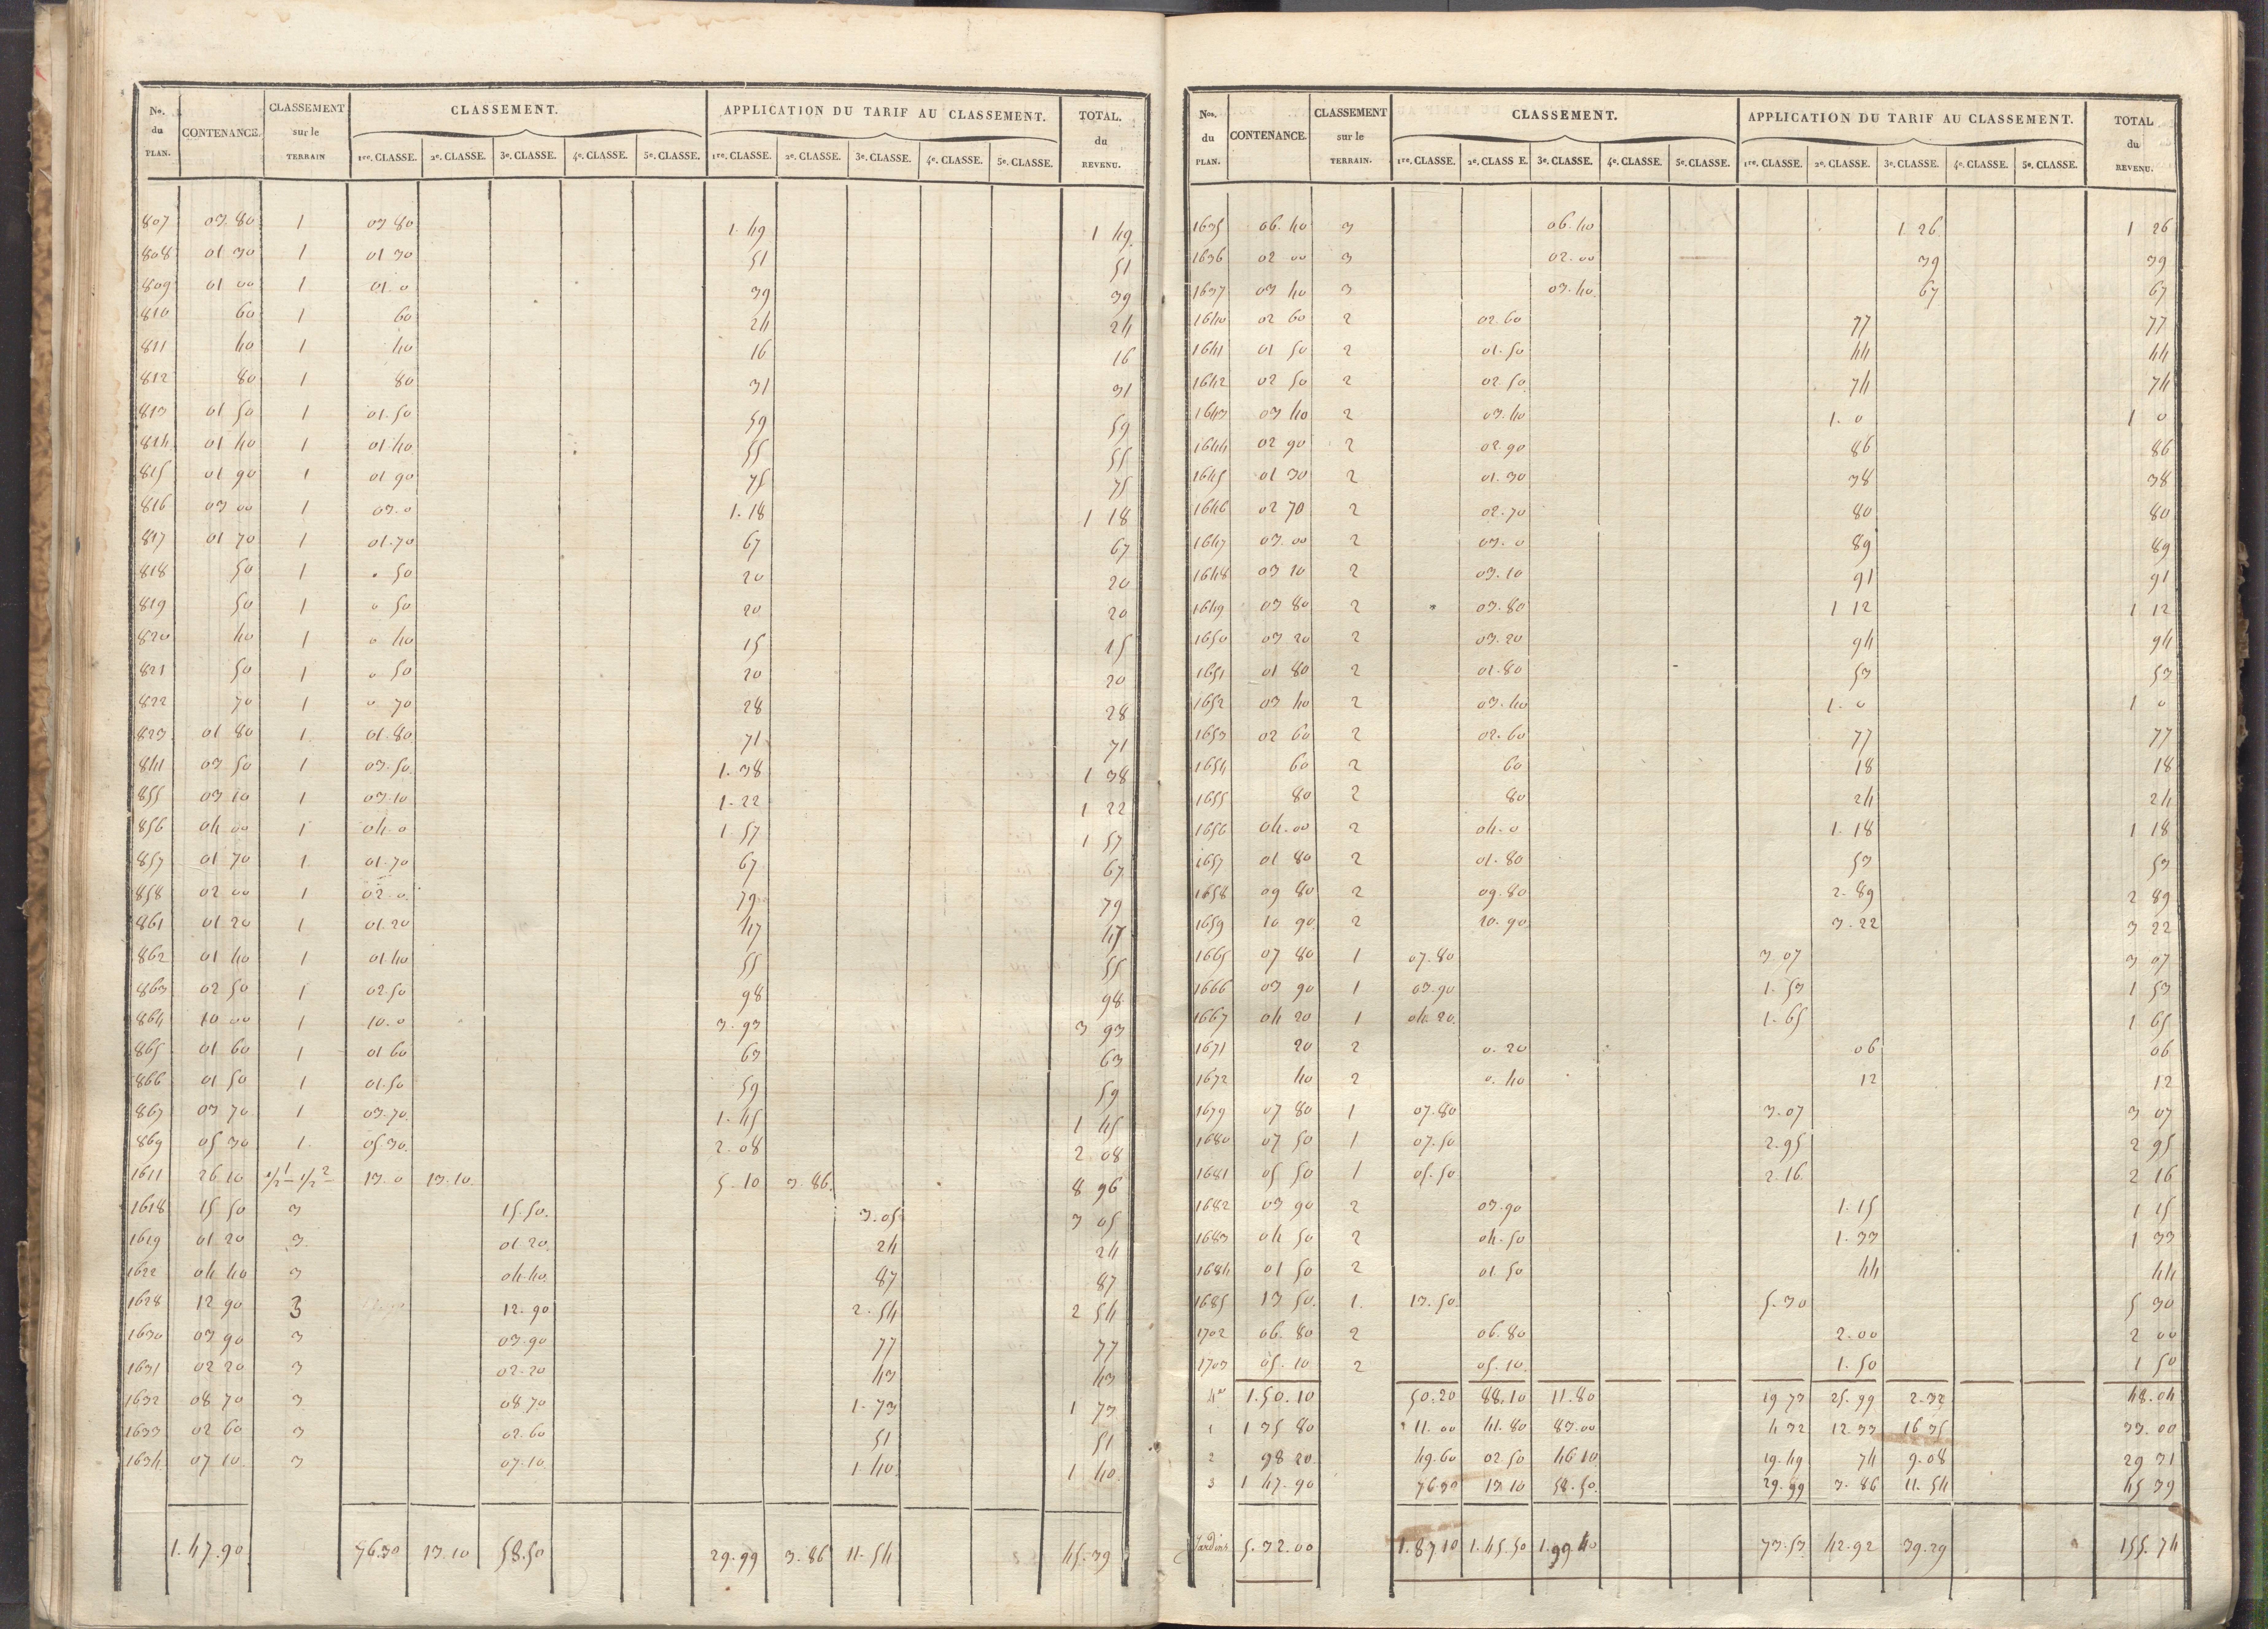 No. du PLAN. CONTENANCE. CLASSEMENT sur le TERRAIN CLASSEMENT. APPLICATION DU TARIF AU CLASSEMENT. TOTAL. du REVENU.
1re. CLASSE. 2e. CLASSE. 3e. CLASSE. 4e. CLASSE. 5e. CLASSE. 1re. CLASSE. 2e. CLASSE. 3e. CLASSE. 4e. CLASSE. 5e. CLASSE.
807 03.80 1 03 80 1.49 1 49
808 01 30 1 01 30 51 51
809 01 00 1 01.0 39 39
810 60 1 60 24 24
811 40 1 40 16 16
812 80 1 80 31 31
813 01 50 1 01.50 59 59
814 01 40 1 01.40 55 55
815 01 90 1 01 90 75 75
816 03 00 1 03.0 1.18 1 18
817 01 70 1 01.70 67 67
818 50 1 . 50 20 20
819 50 1 0 50 20 20
820 40 1 0 40 15 15
821 50 1 0 50 20 20
822 70 1 0 70 28 28
823 01 80 1 01.80 71 71
841 03 50 1 03.50 1.38 1 38
855 03 10 1 03.10 1.22 1 22
856 04 00 1 04.0 1.57 1 57
857 01 70 1 01.70 67 67
858 02 00 1 02.0 79 79
861 01 20 1 01.20 47 47
862 01 40 1 01 40 55 55
863 02 50 1 02.50 98 98
864 10 00 1 10.0 3.93 3 93
865 01 60 1 01 60 63 63
866 01 50 1 01.50 59 59
867 03 70 1 03.70 1.45 1 45
869 05 30 1 05 30 2.08 2 08
1611 26 10 1/2 1 - 1/2 2 13.0 13.10 5.10 3.86 8 96
1618 15 50 3 15.50 3.05 3 05
1619 01 20 3 01.20 24 24
1622 04 40 3 04.40 87 87
1628 12 90 3 12.90 2.54 2 54
1630 03 90 3 03.90 77 77
1631 02 20 3 02.20 43 43
1632 08 70 3 08.70 1.73 1 73
1633 02 60 3 02.60 51 51
1634 07 10 3 07.10 1 40 1 40
1.47.90 76.30 13.10 58.50 29.99 3.86 11.54 45.39
Nos. du PLAN. CONTENANCE. CLASSEMENT sur le TERRAIN. CLASSEMENT. APPLICATION DU TARIF AU CLASSEMENT. TOTAL du REVENU.
1re. CLASSE. 2e. CLASS E. 3e. CLASSE. 4e. CLASSE. 5e. CLASSE. 1re. CLASSE. 2e. CLASSE. 3e. CLASSE. 4e. CLASSE. 5e. CLASSE.
1635 06.40 3 06.40 1 26 1 26
1636 02 00 3 02.00 39 39
1637 03 40 3 03.40 67 67
1640 02 60 2 02.60 77 77
1641 01 50 2 01.50 44 44
1642 02 50 2 02.50 74 74
1643 03 40 2 03.40 1.0 1 0
1644 02 90 2 02.90 86 86
1645 01 30 2 01.30 38 38
1646 02 70 2 02.70 80 80
1647 03.00 2 03.0 89 89
1648 03 10 2 03.10 91 91
1649 03 80 2 03.80 1 12 1 12
1650 03 20 2 03.20 94 94
1651 01 80 2 01.80 53 53
1652 03 40 2 03.40 1.0 1 0
1653 02 60 2 02.60 77 77
1654 60 2 60 18 18
1655 80 2 80 24 24
1656 04.00 2 04.0 1.18 1 18
1657 01 80 2 01.80 53 53
1658 09 80 2 09.80 2.89 2 89
1659 10 90 2 10.90 3.22 3 22
1665 07 80 1 07.80 3 07 3 07
1666 03 90 1 03.90 1.53 1 53
1667 04 20 1 04.20 1.65 1 65
1671 20 2 0.20 06 06
1672 40 2 0.40 12 12
1679 07 80 1 07.80 3.07 3 07
1680 07 50 1 07.50 2.95 2 95
1681 05 50 1 05.50 2 16 2 16
1682 03 90 2 03.90 1.15 1 15
1683 04 50 2 04.50 1.33 1 33
1684 01 50 2 01 50 44 44
1685 13 50 1. 13.50 5.30 5 30
1702 06.80 2 06.80 2.00 2 00
1703 05.10 2 05.10 1.50 1 50
1.50.10 50.20 88.10 11.80 19 73 25.99 2.32 48.04
1 1 35 80 11.00 41.80 83.00 4 32 12.33 16 35 33.00
2 98 20 49.60 02.50 46 10 19.49 74 9.08 29 31
3 1 47.90 76.30 13.10 58.50 29.99 3.86 11.54 45 39
Jardins 5.32.00 1.87.10 1.45.50 1.99 40 73.53 42.92 39.29 155.74